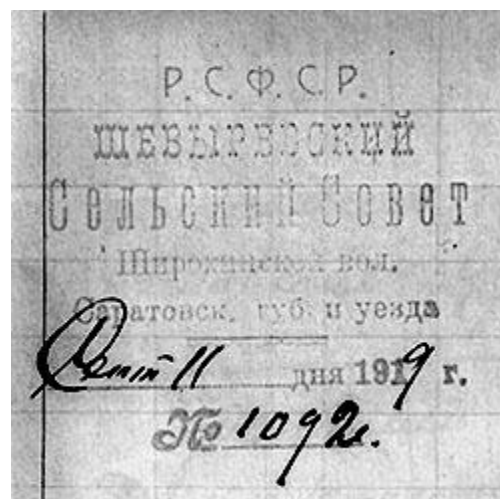 Р. С. Ф. С. Р.
ШЕВЫРЕВСКИЙ
Сельский Совет
Широкинской вол.
Саратовск. губ. и уезда
Сент 11 дня 1919 г.
№ 1092.